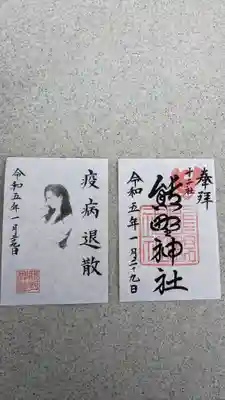 疫病退散
令和五年一月二十九日
奉拝
十二社
熊野神社
令和五年一月二十九日